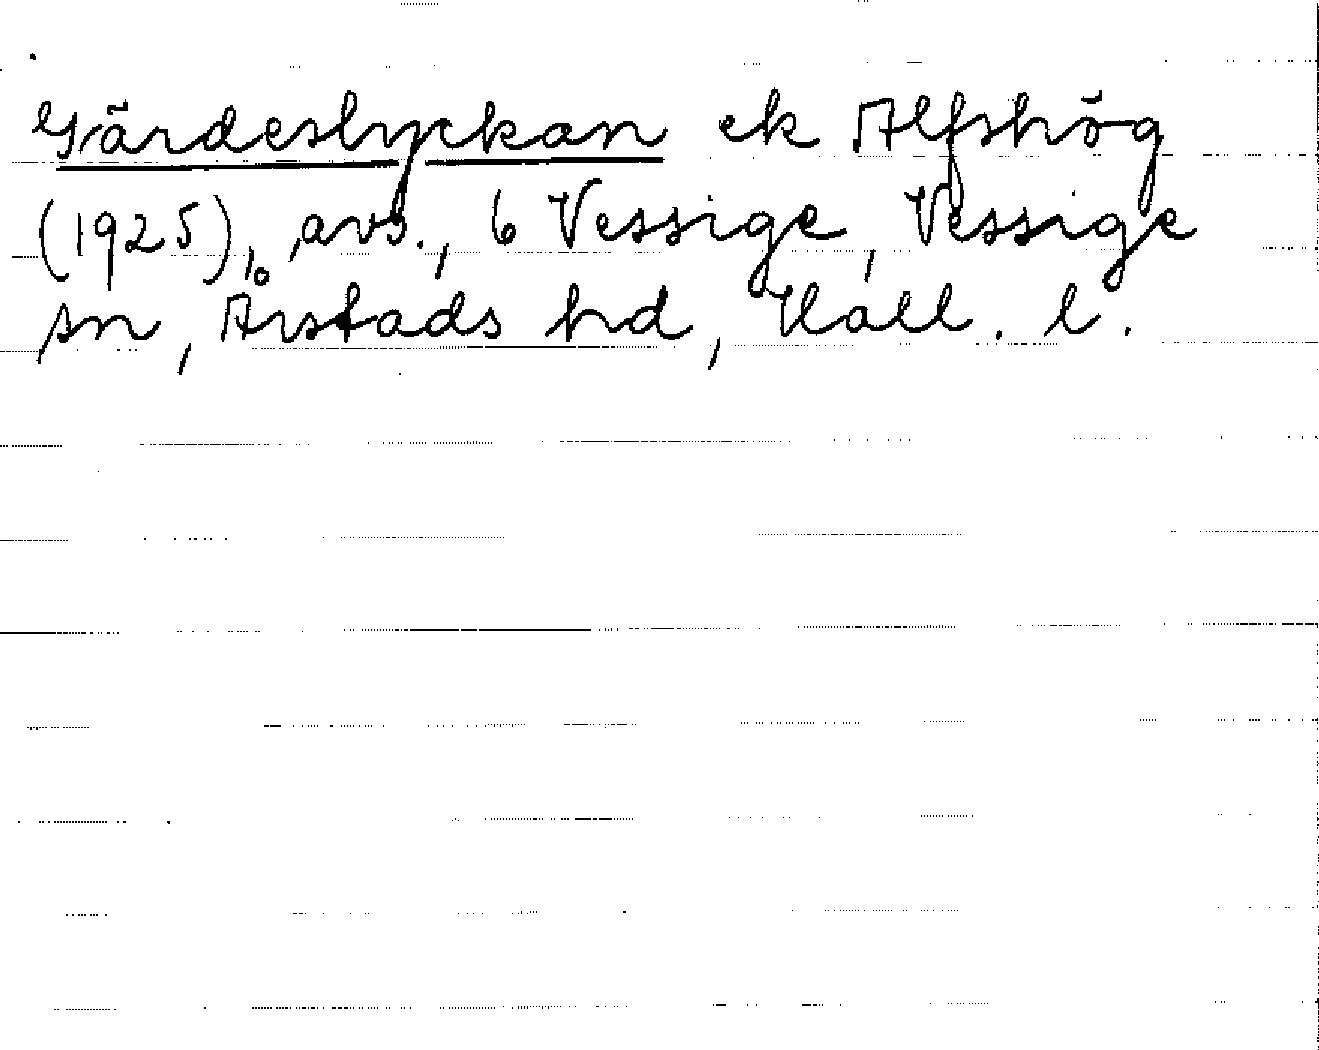 Gärdeslyckan ek Alfshög
(1925), avs., 6 Vessige, Vessige
sn, Årstads hd, Hall. l.